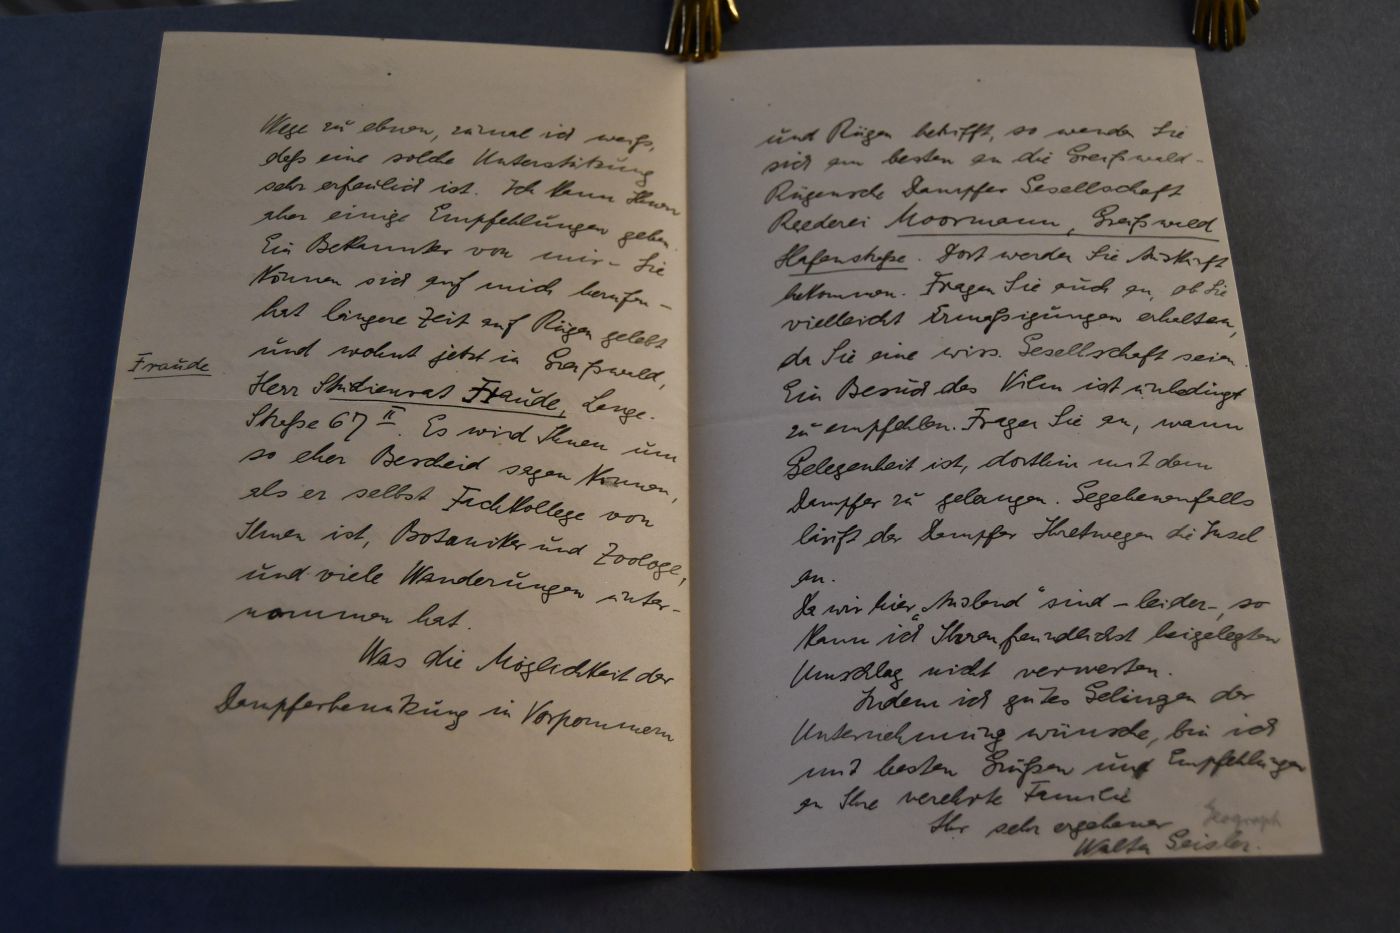 Wege zu ebnen, zumal ich weiß,
daß eine solche Unterstützung
sehr erfreulich ist. Ich kann Ihnen
aber einige Empfehlungen geben.
Ein Bekannter von mir – Sie
können sich auf mich berufen –
hat längere Zeit auf Rügen gelebt
und wohnt jetzt in Greifswald,
Fraude
Herr Studienrat Fraude, Lange-
Straße 67 II. Es wird Ihnen um
so eher Bescheid sagen können,
als er selbst Fachkollege von
Ihnen ist, Botaniker und Zoologe,
und viele Wanderungen unter-
nommen hat.
Was die Möglichkeit der
Dampferbenutzung in Vorpommern
und Rügen betrifft, so wenden Sie
sich am besten an die Greifswald-
Rügensche Dampfer Gesellschaft
Reederei Moormann, Greifswald
Hafenstraße. Dort werden Sie Auskunft
bekommen. Fragen Sie auch an, ob Sie
vielleicht Ermäßigungen erhalten,
da Sie eine wiss. Gesellschaft seien.
Ein Besuch des Vilm ist unbedingt
zu empfehlen. Fragen Sie an, wann
Gelegenheit ist, dorthin mit dem
Dampfer zu gelangen. Gegebenenfalls
läuft der Dampfer Ihretwegen die Insel
an.
Da wir hier „Ausland" sind – leider –, so
kann ich Ihren freundlichst beigelegten
Umschlag nicht verwerten.
Indem ich gutes Gelingen der
Unternehmung wünsche, bin ich
mit besten Grüßen und Empfehlungen
an Ihre verehrte Familie
Ihr sehr ergebener
Geograph
Walter Geisler.